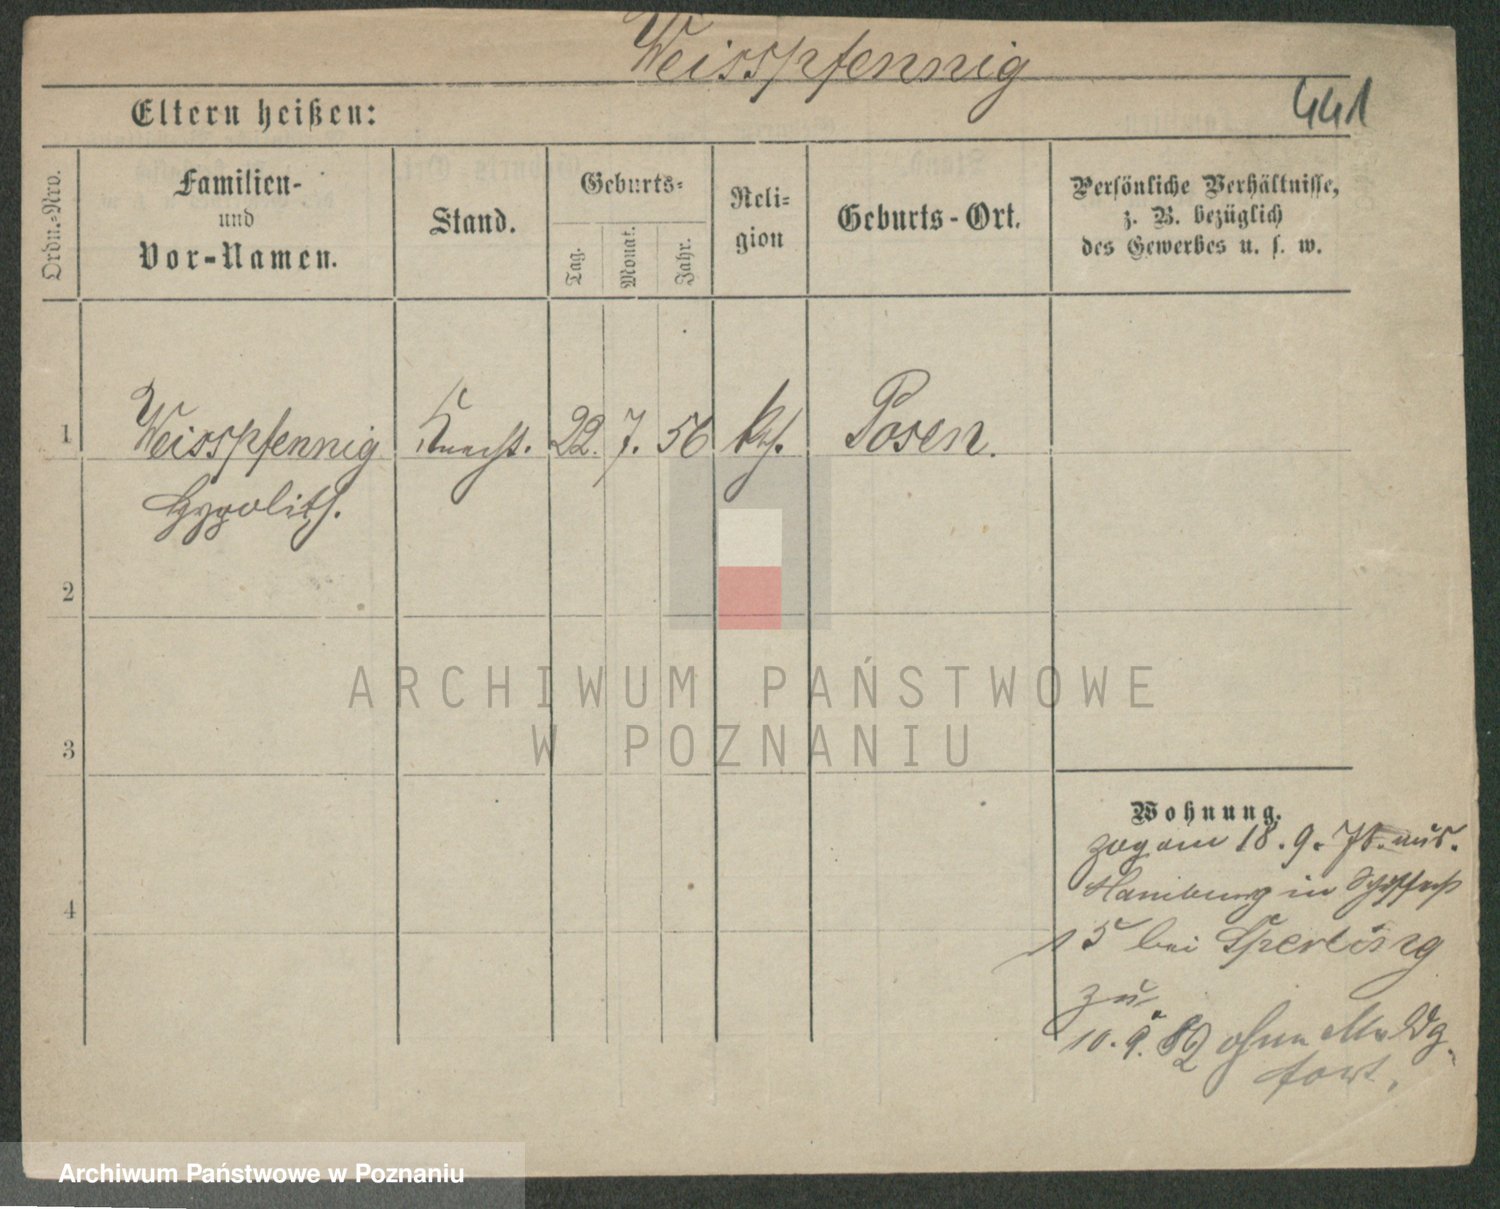 Weisspfennig
441
Eltern heißen:
Ordn.-Nro.
Familien-
und
Vor-Namen.
Stand.
Geburts-
Tag.
Monat.
Jahr.
Reli-
gion
Geburts-Ort.
Persönliche Verhältnisse,
z. B. bezüglich
des Gewerbes u. s. w.
1 Weisspfennig Knecht. 22. 7. 56 kth. Posen.
Hypolith.
2
3
4
Wohnung.
zog am 18. 9. aus.
Hamburg in
15 bei Sperling
zu.
10. 9. 82 ohne Meldg.
fort.
ARCHIWUM PAŃSTWOWE
W POZNANIU
Archiwum Państwowe w Poznaniu